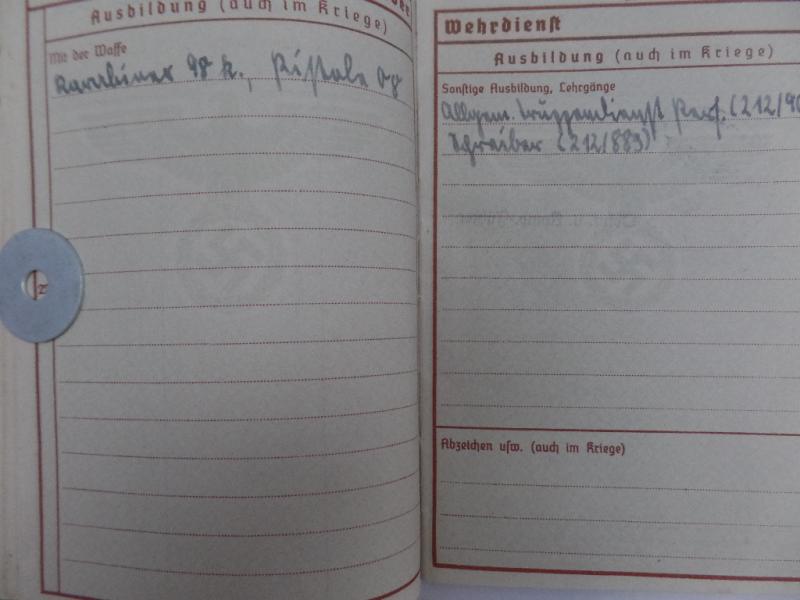 Ausbildung (auch im Kriege)
Mit der Waffe
Karabiner 98 k., Pistole 08
Wehrdienst
Ausbildung (auch im Kriege)
Sonstige Ausbildung, Lehrgänge
Allgem. Truppendienst Pers. (212/90
Schreiber (212/883)
Abzeichen usw. (auch im Kriege)